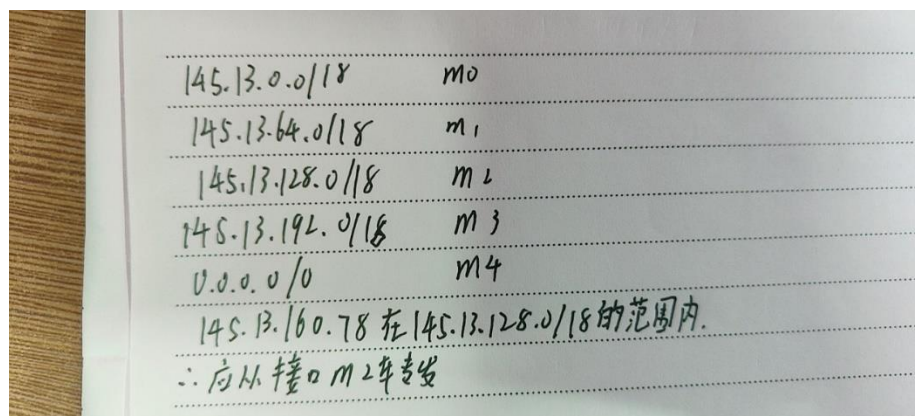 145.13.0.0/18 m0
145.13.64.0/18 m1
145.13.128.0/18 m2
145.13.192.0/18 m3
0.0.0.0/0 m4
145.13.160.78在145.13.128.0/18的范围内.
∴应从接口m2转发